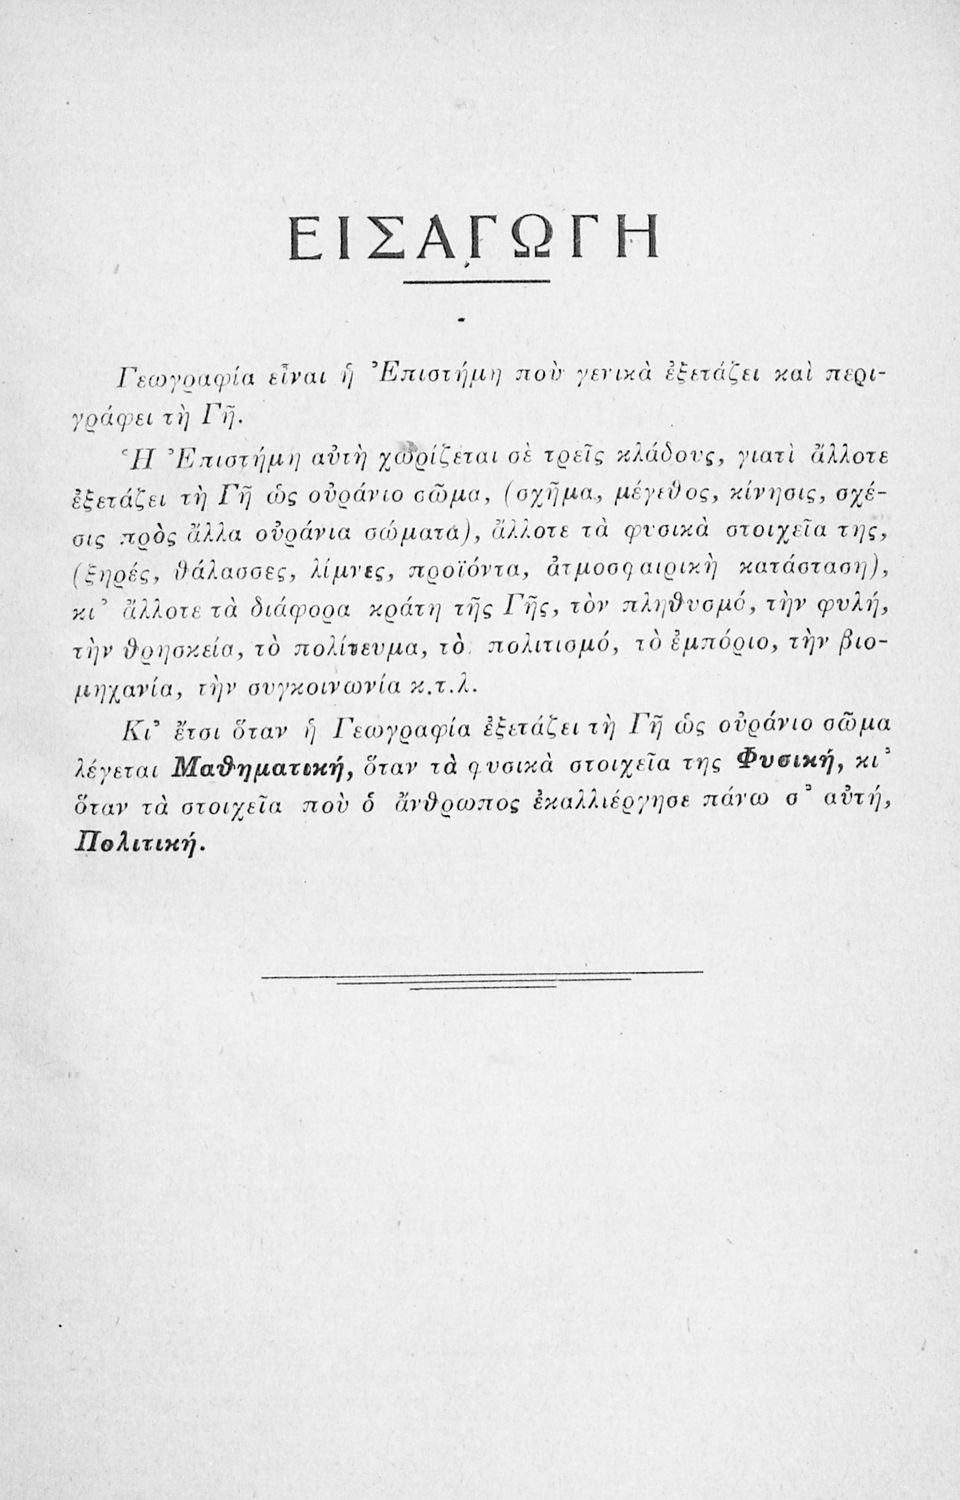 ΕΙΣΑΓΩΓΗ
Γεωγραφία εἶναι ἡ Ἐπιστήμη ποὺ γενικὰ ἐξετάζει καὶ περι-
γράφει τὴ Γῆ.
Ἡ Ἐπιστήμη αὐτὴ χωρίζεται σὲ τρεῖς κλάδους, γιατὶ ἄλλοτε
ἐξετάζει τὴ Γῆ ὡς οὐράνιο σῶμα, (σχῆμα, μέγεθος, κίνησις, σχέ-
σις πρὸς ἄλλα οὐράνια σώματα), ἄλλοτε τὰ φυσικὰ στοιχεῖα της,
(ξηρές, θάλασσες, λίμνες, προϊόντα, ἀτμοσφαιρικὴ κατάσταση),
κι᾽ ἄλλοτε τὰ διάφορα κράτη τῆς Γῆς, τὸν πληθυσμό, τὴν φυλή,
τὴν θρησκεία, τὸ πολίτευμα, τὸ πολιτισμό, τὸ ἐμπόριο, τὴν βιο-
μηχανία, τὴν συγκοινωνία κ.τ.λ.
Κι᾽ ἔτσι ὅταν ἡ Γεωγραφία ἐξετάζει τὴ Γῆ ὡς οὐράνιο σῶμα
λέγεται Μαθηματική, ὅταν τὰ φυσικὰ στοιχεῖα της Φυσική, κι᾽
ὅταν τὰ στοιχεῖα ποὺ ὁ ἄνθρωπος ἐκαλλιέργησε πάνω σ᾽ αὐτή,
Πολιτική.